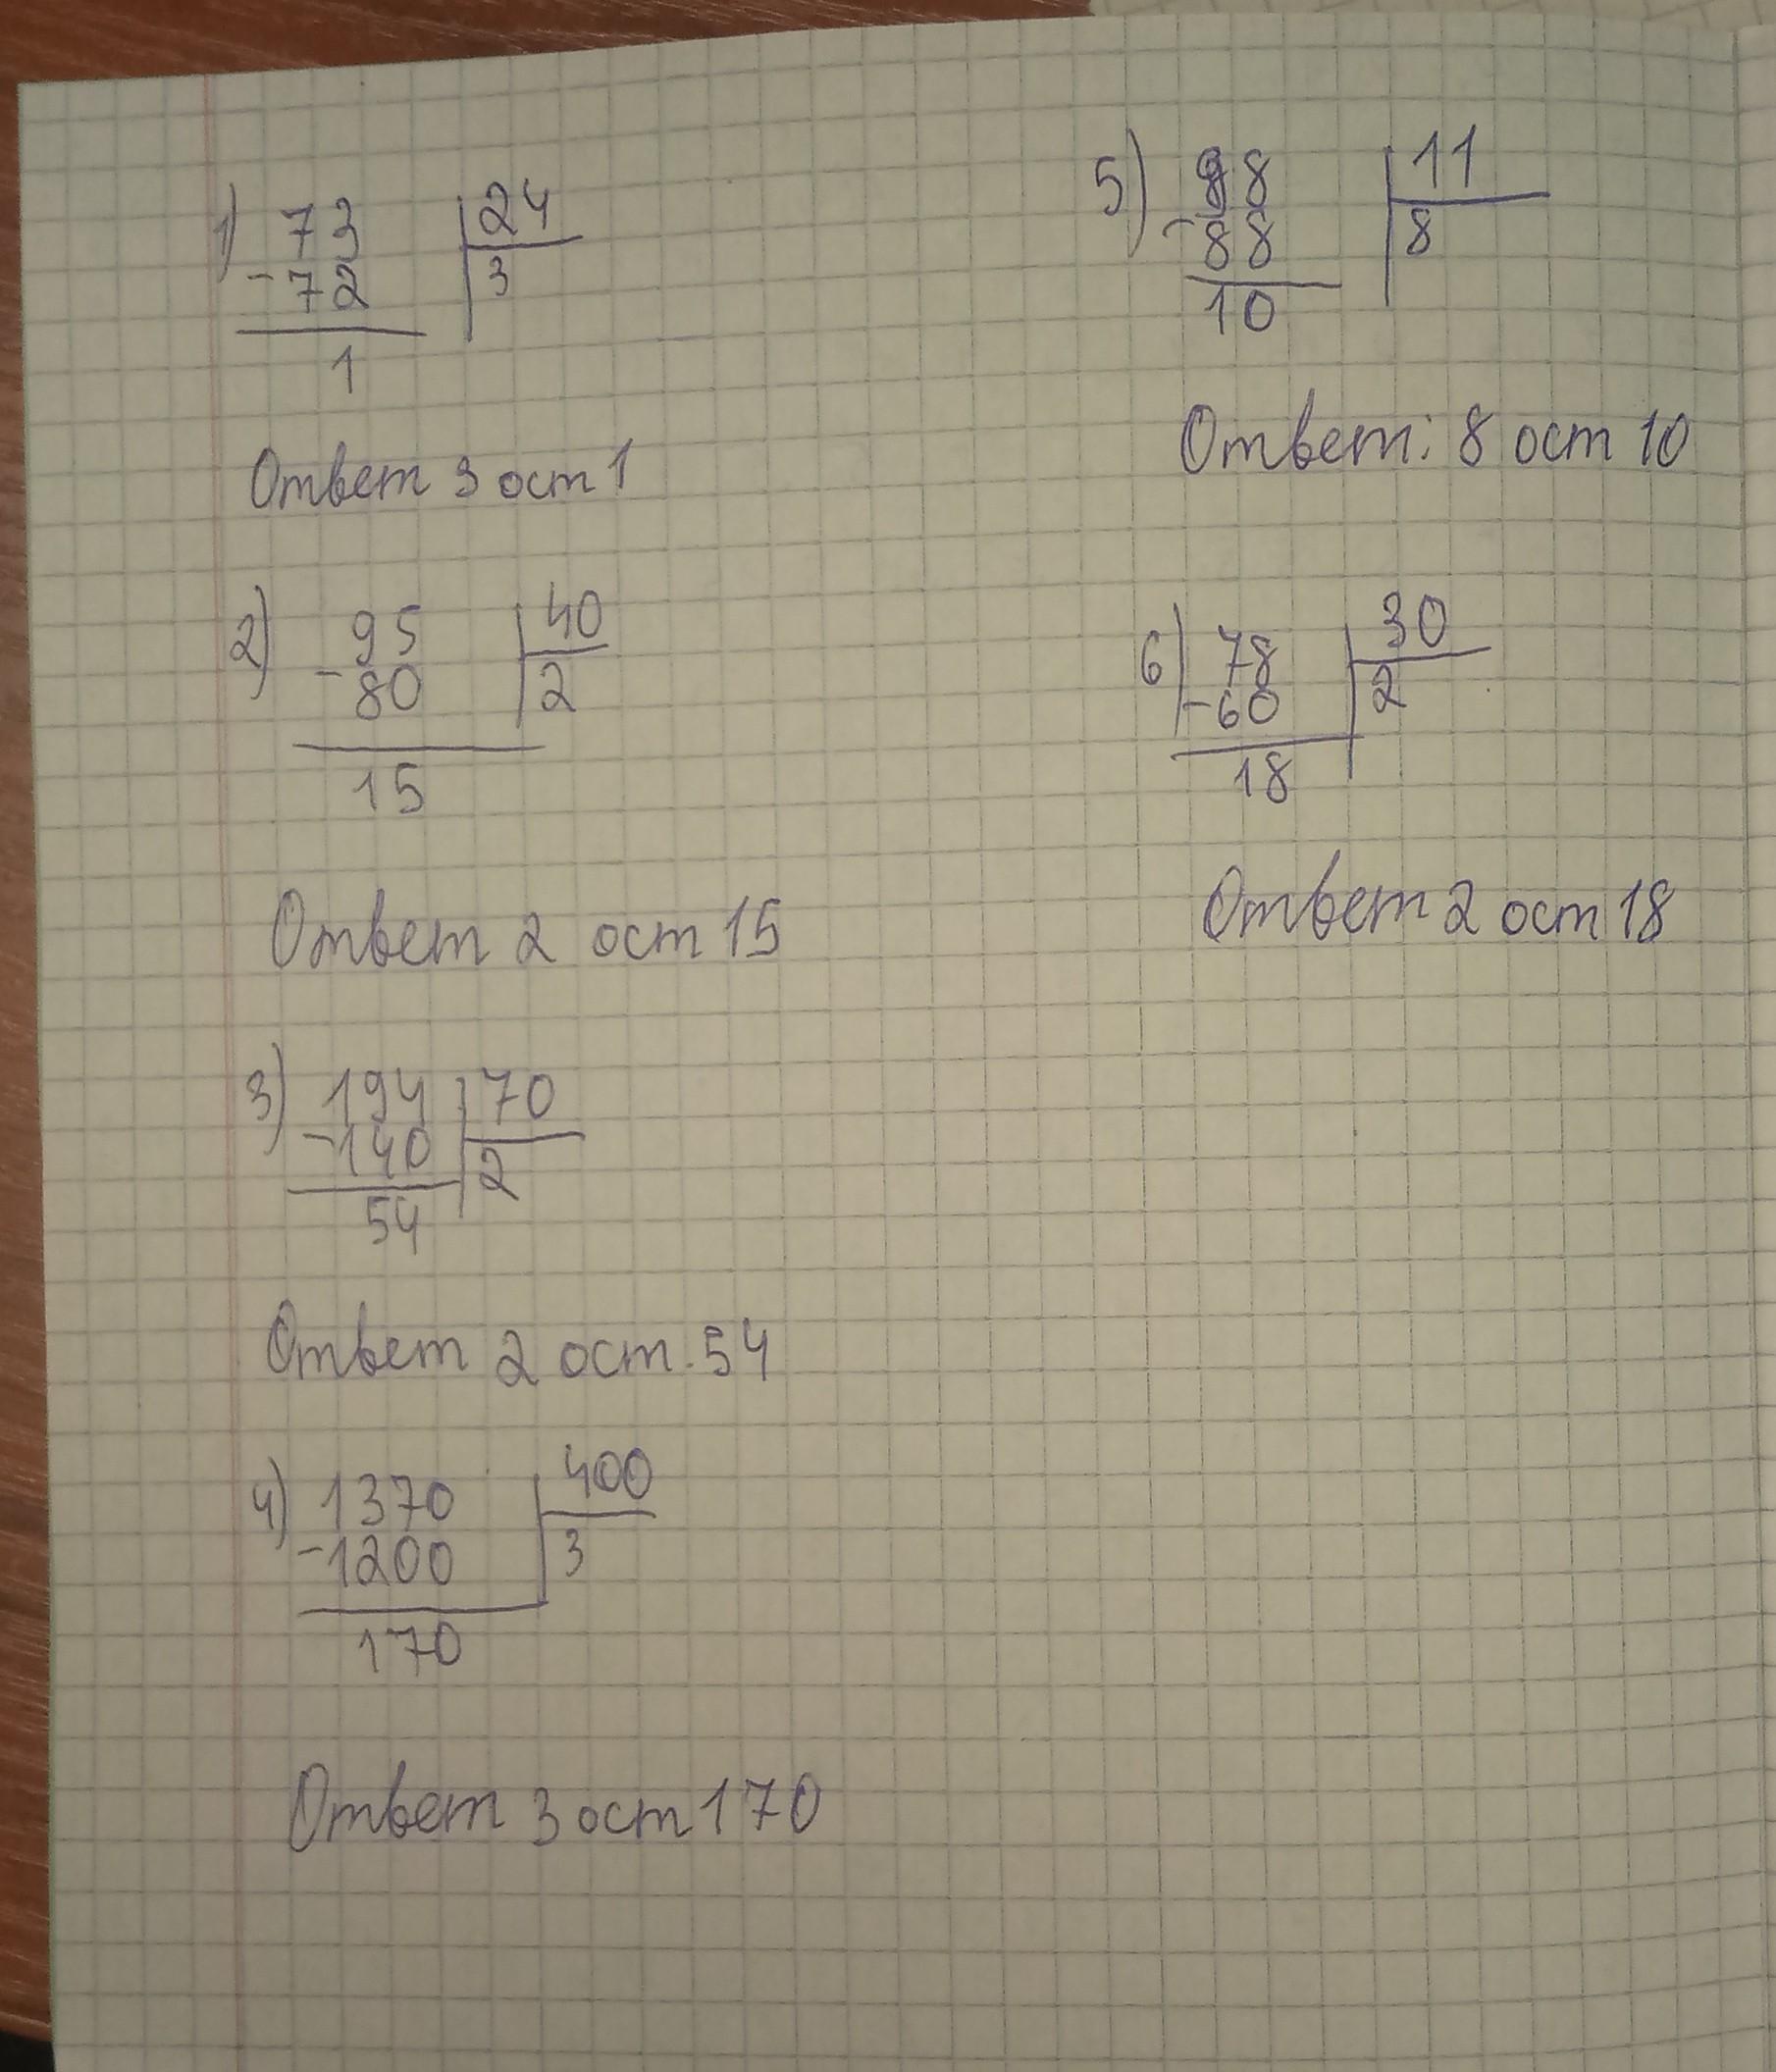 1) 73 | 24
- 72 | 3
1
Ответ 3 ост 1
2) 95 | 40
- 80 | 2
15
Ответ 2 ост 15
3) 194 | 70
- 140 | 2
54
Ответ 2 ост. 54
4) 1370 | 400
- 1200 | 3
170
Ответ 3 ост 170
5) 98 | 11
- 88 | 8
10
Ответ: 8 ост 10
6) 78 | 30
- 60 | 2
18
Ответ 2 ост 18